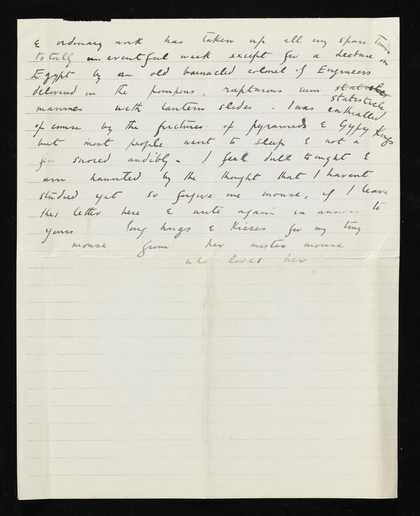 & ordinary work has taken up all my spare time
totally uneventful week except for a lecture on
Egypt by an old barnacled colonel of Engineers
delivered in the pompous, rapturous cum
statistical
manner with lantern slides. I was enthralled
of course by the pictures of pyramids & Gypy Kings
but most people went to sleep & not a
few snored audibly. I feel dull tonight &
am haunted by the thought that I havent
studied yet so forgive me mouse, if I leave
this letter here & write again in answer to
yours long hugs & kisses for my tiny
mouse from her mister mouse
who loves her